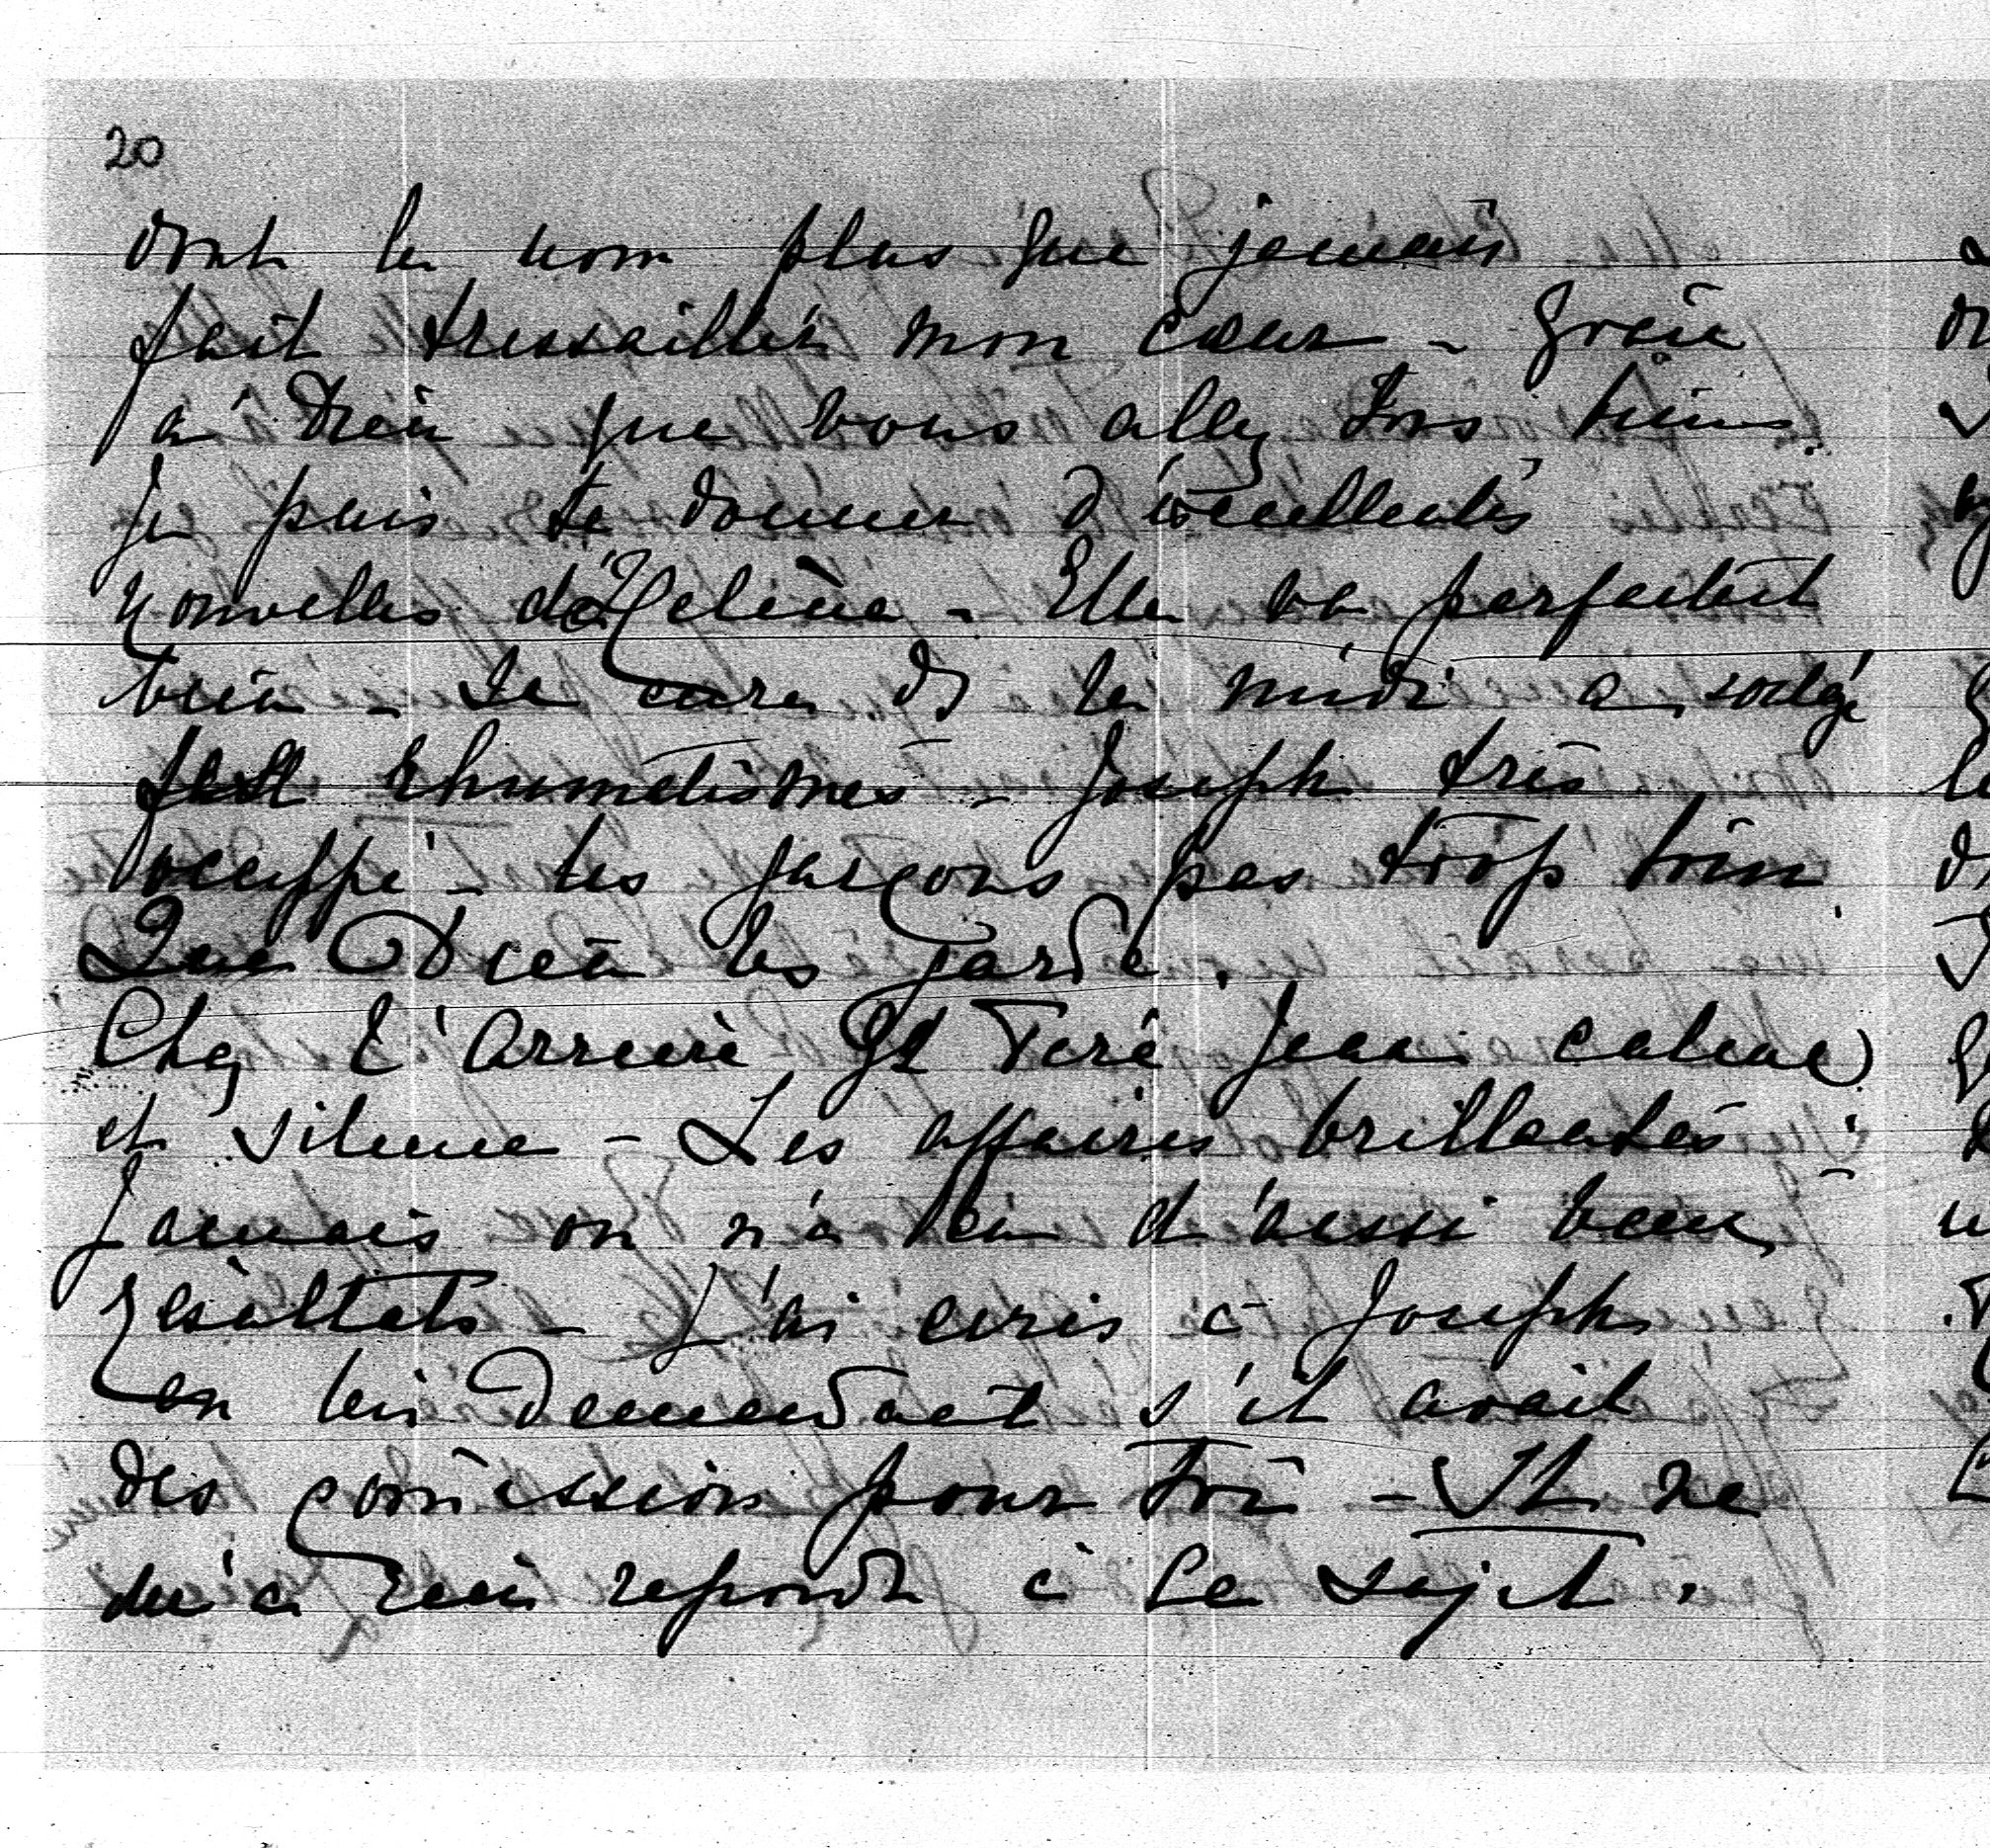 20
dont le nom plus que jamais
fait tressaillir mon cœur - Grâce
à Dieu que vous allez tous bien.
Je puis te donner d'excellentes
nouvelles de Helène - Elle va parfaitet
bien - Sa cure ds le midi a solagé
rhumatismes - Joseph très
occuppé - les garçons pas trop loin
Que Dieu les garde.
Chez L'Arrière Gd Père Jean calme
et silence - Les affaires brillantes :
Jamais on n'a vu d'aussi beau
résultats - J'ai ecris à Joseph
en lui demandant s'il avait
des comission pour Toi - Il ne
m'a rien repondu à ce sujet.